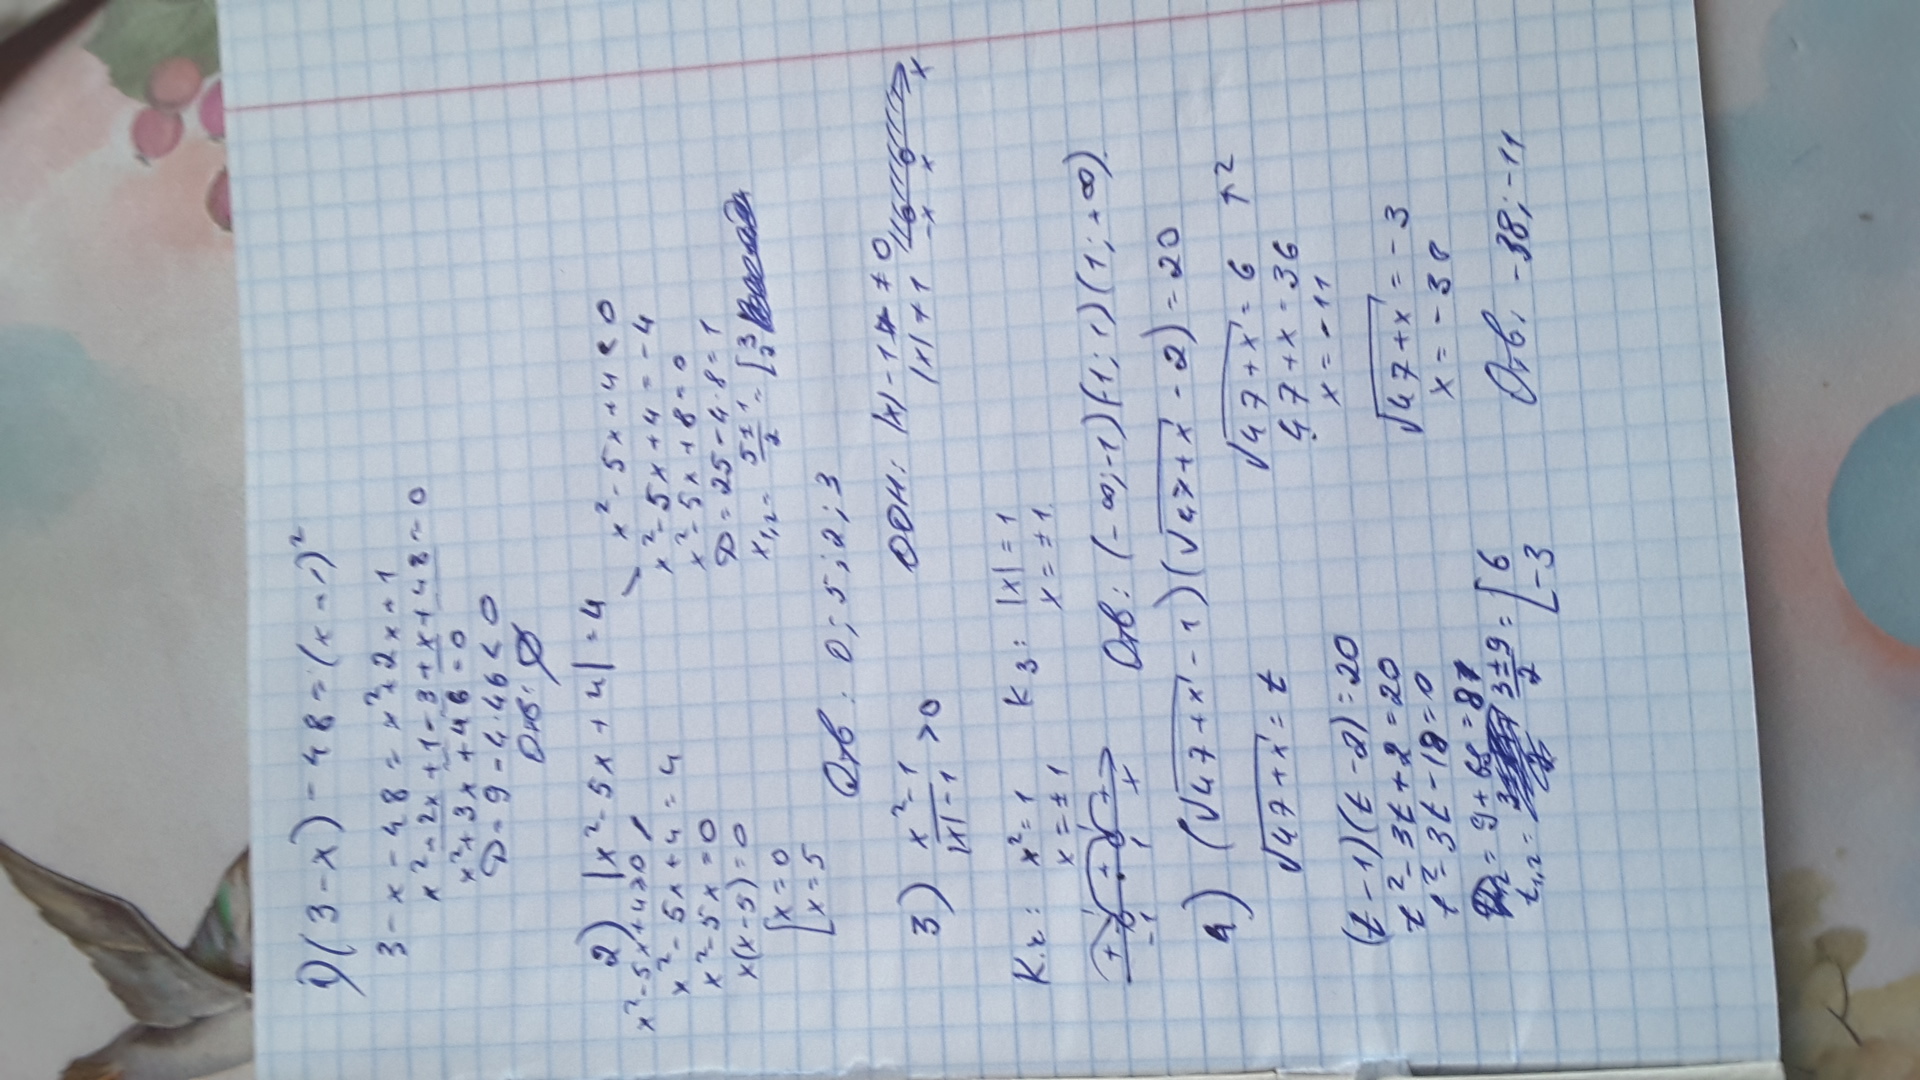 1) (3-x)-48=(x-1)²
3-x-48=x²+2x+1
x²+2x+1-3+x+48=0
x²+3x+46=0
D=9-4·46<0
Отв: ∅
2) |x²-5x+4|=4
x²-5x+4≥0
x²-5x+4=4
x²-5x=0
x(x-5)=0
[x=0
x=5
x²-5x+4<0
x²-5x+4=-4
x²-5x+8=0
D=25-4·8=1
x₁,₂=5±1/2=[3
2
Отв: 0; 5; 2; 3
3) x²-1/|x|-1>0
ООН: |x|-1≠0
|x|≠1
-x x x
К.ч: x²=1
x=±1
К з: |x|=1
x=±1
+ + +
-1 1 x
Отв: (-∞;-1)(-1;1)(1;+∞)
4) (√47+x-1)(√47+x-2)=20
√47+x=t
(t-1)(t-2)=20
t²-3t+2=20
t²-3t-18=0
=9+ =81
t₁,₂= 3±9/2=[6
-3
√47+x=6 ↑²
47+x=36
x=-11
√47+x=-3
x=-38
Отв: -38; -11